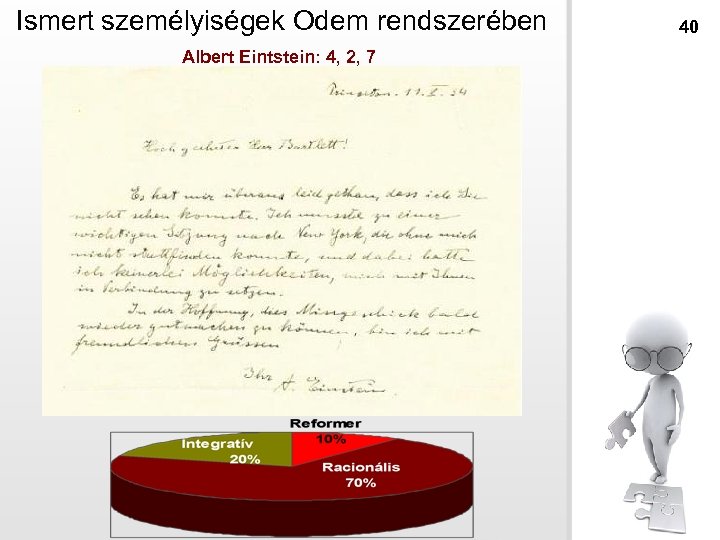 Ismert személyiségek Odem rendszerében
40
Albert Eintstein: 4, 2, 7
Princeton. 11. X. 34
Hoch geehrter Herr Bartlett!
Es hat mir überaus leid gethan, dass ich Sie
nicht sehen konnte. Ich musste zu einer
wichtigen Sitzung nach New York, die ohne mich
nicht stattfinden konnte, und dabei hatte
ich keinerlei Möglichkeiten, mich mit Ihnen
in Verbindung zu setzen.
In der Hoffnung, dies Missgeschick bald
wieder gutmachen zu können, bin ich mit
freundlichen Grüssen
Ihr A. Einstein.
Reformer
10%
Integratív
20%
Racionális
70%